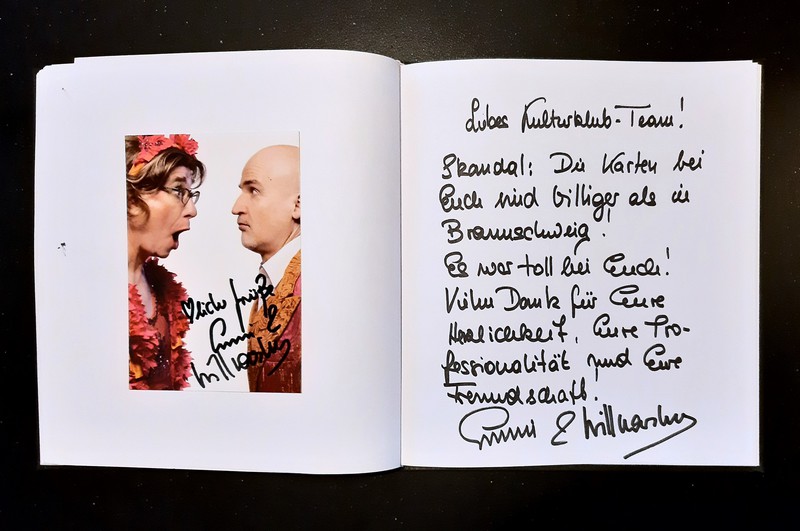 ♡lich Grüße
Emmi &
Willnowsky
Liebes Kulturklub-Team!
Skandal: Die Karten bei
Euch sind billiger als in
Braunschweig!
Es war toll bei Euch!
Vielen Dank für Eure
Herzlichkeit, Eure Pro-
fessionalität und Eure
Freundschaft!
Emmi & Willnowsky